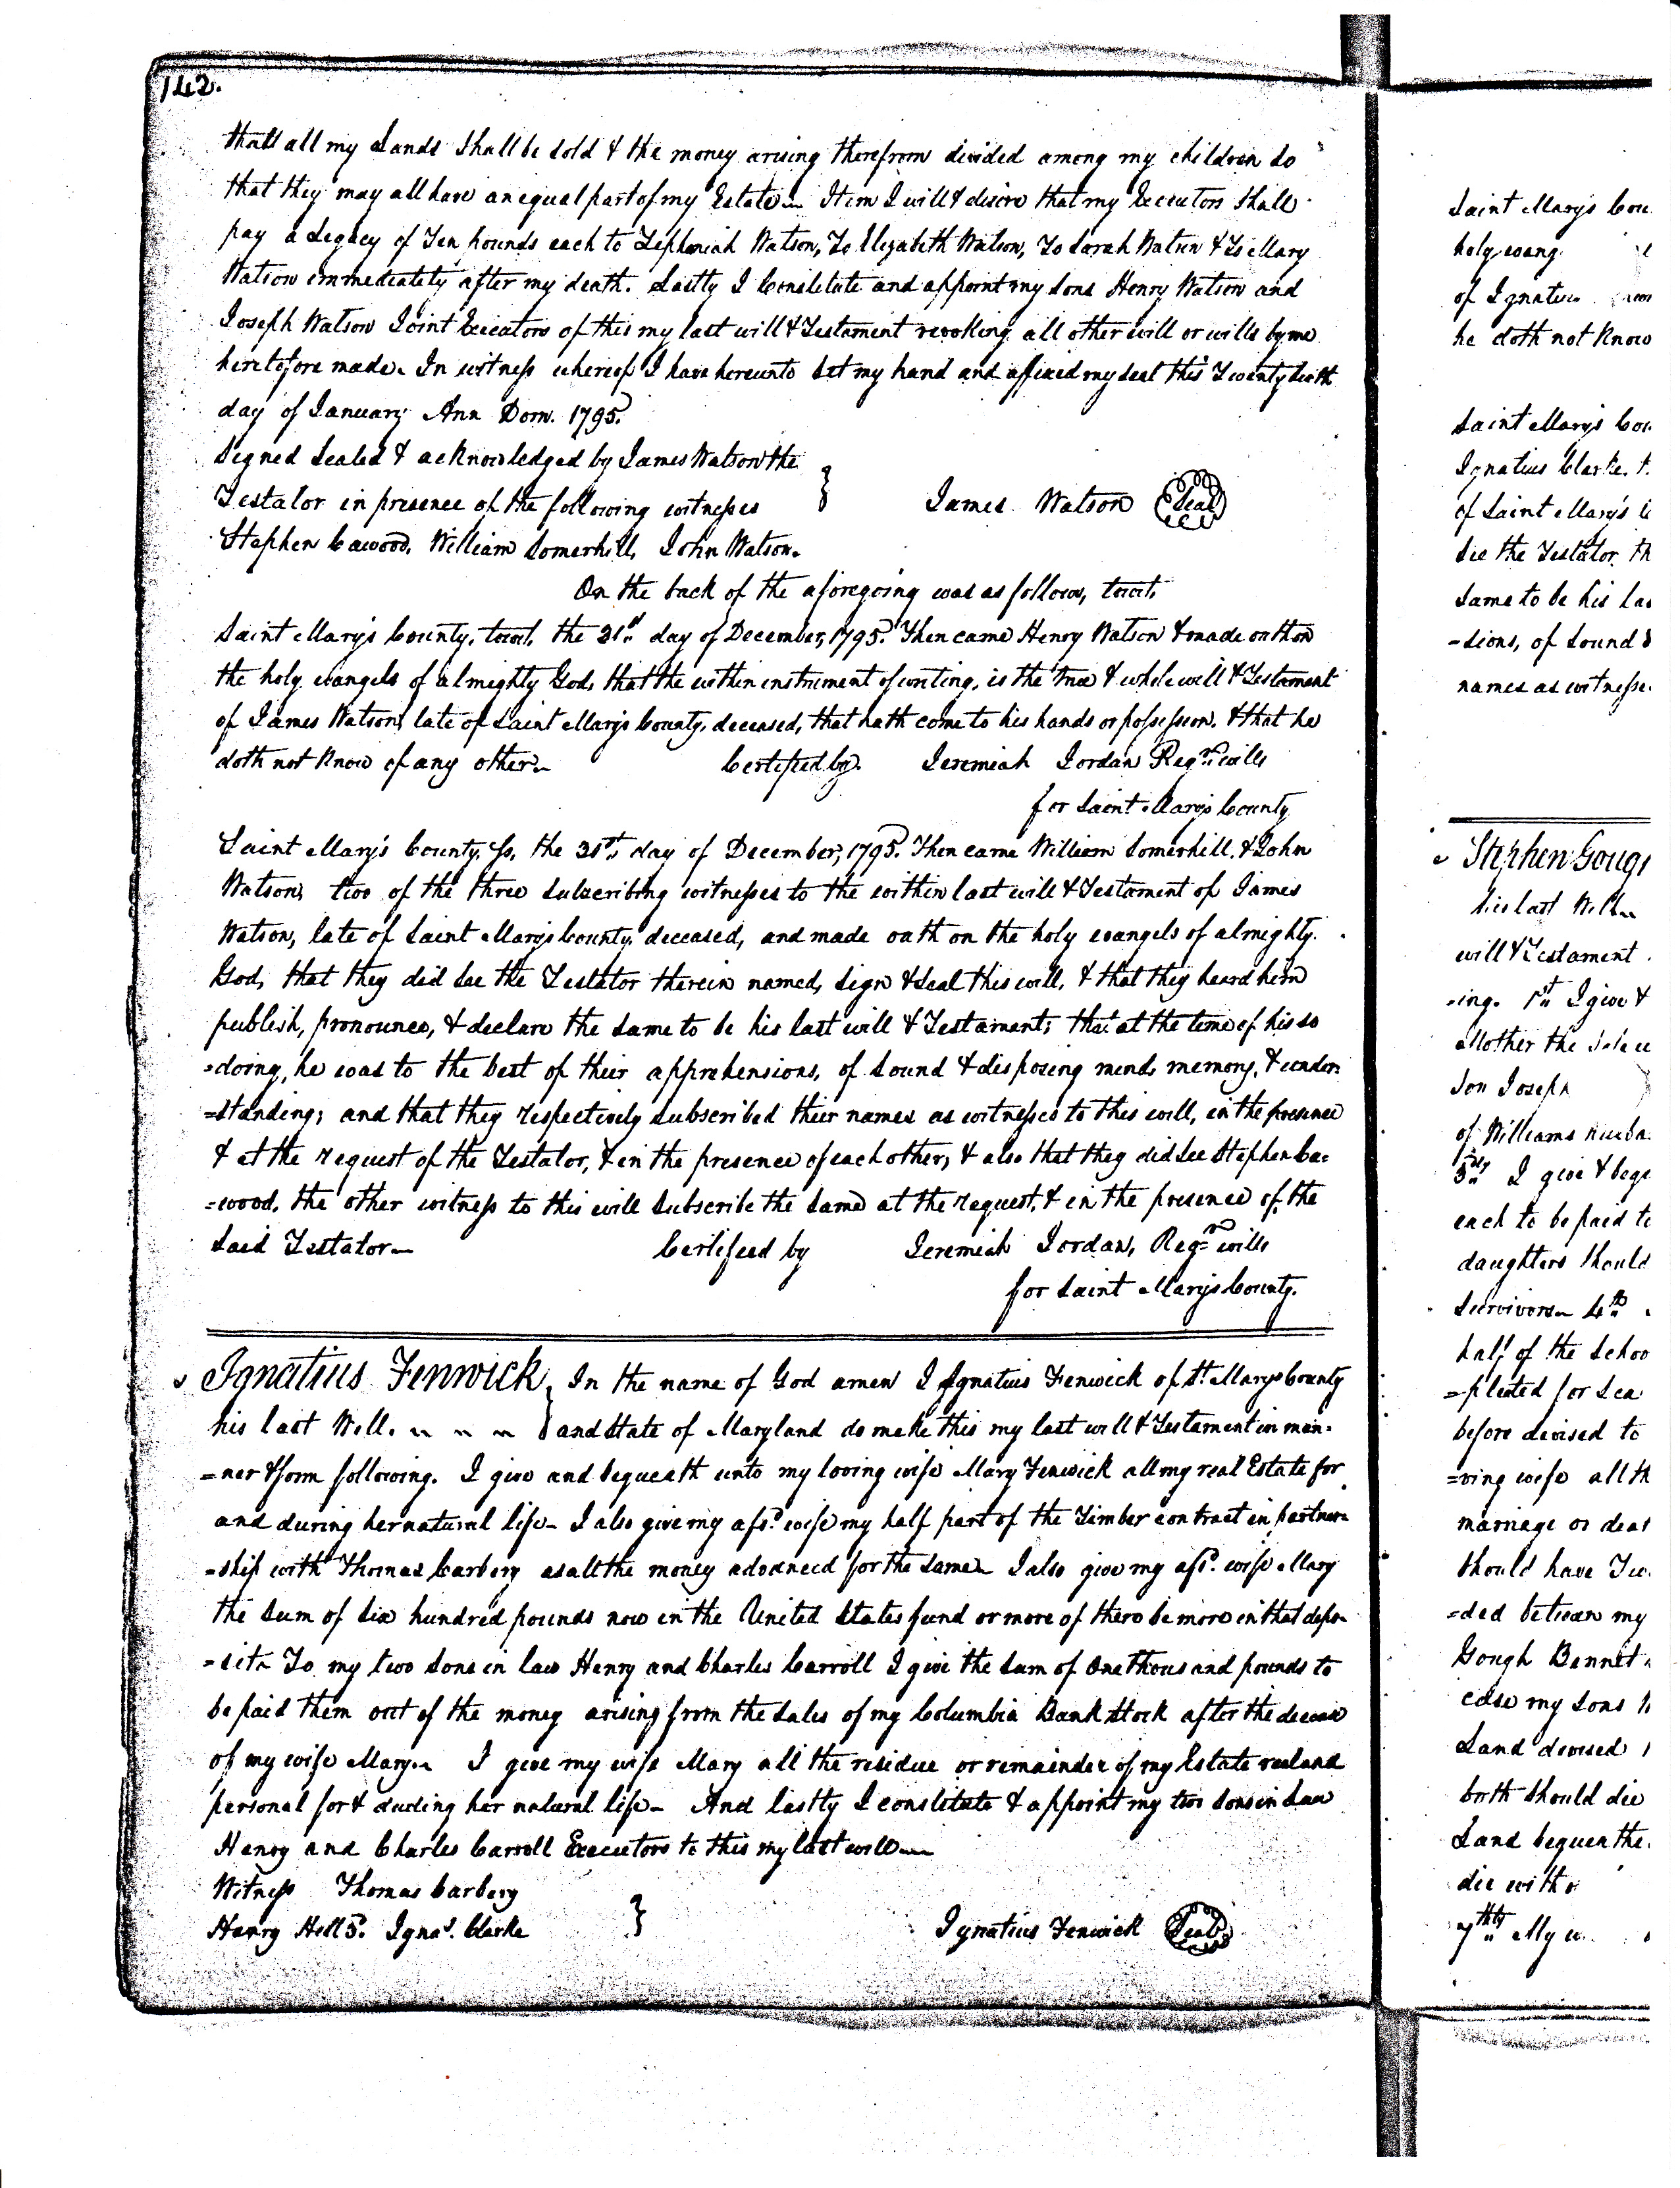 142.
that all my Lands shall be sold & the money arising therefrom divided among my children so
that they may all have an equal part of my Estate. Item I will & desire that my Executors shall
pay a Legacy of Ten pounds each to Zephaniah Watson, To Elizabeth Watson, To Sarah Watson & To Mary
Watson immediately after my death. Lastly I Constitute and appoint my sons Henry Watson and
Joseph Watson Joint Executors of this my last will & Testament revoking all other will or wills by me
heretofore made. In witness whereof I have hereunto set my hand and affixed my seal this Twenty sixth
day of January Ann Dom. 1795.
Signed Sealed & acknowledged by James Watson the
Testator in presence of the following witnesses } James Watson Seal
Stephen Cawood, William Somerhill, John Watson.
On the back of the aforegoing was as follows, towit.
Saint Mary's County, towit, the 31st day of December, 1795. Then came Henry Watson & made oath on
the holy evangels of almighty God, that the within instrument of writing, is the true & whole will & Testament
of James Watson, late of Saint Mary's County, deceased, that hath come to his hands or possession, & that he
doth not know of any other. Certified by. Jeremiah Jordan Regr. wills
for Saint Mary's County
Saint Mary's County, ss, the 31st day of December, 1795. Then came William Somerhill, & John
Watson, two of the three subscribing witnesses to the within last will & Testament of James
Watson, late of Saint Mary's County, deceased, and made oath on the holy evangels of almighty
God, that they did see the Testator therein named, sign & seal this will, & that they heard him
publish, pronounce, & declare the same to be his last will & Testament; that at the time of his so
=doing, he was to the best of their apprehensions, of sound & disposing mind, memory, & under
=standing; and that they respectively subscribed their names as witnesses to this will, in the presence
& at the request of the Testator, & in the presence of each other, & also that they did see Stephen Ca=
=wood, the other witness to this will subscribe the same at the request, & in the presence of the
said Testator. Certified by Jeremiah Jordan, Regr. wills
for Saint Mary's County.
Ignatius Fenwick { In the name of God amen I Ignatius Fenwick of St. Marys County
his last Will. { and State of Maryland do make this my last will & Testament in man=
=ner & form following. I give and bequeath unto my loving wife Mary Fenwick all my real Estate for
and during her natural life. I also give my afsd. wife my half part of the Timber contract in partner=
=ship with Thomas Carbery as all the money advanced for the same. I also give my afsd. wife Mary
the sum of six hundred pounds now in the United States fund or more if there be more in that depo=
=sit. To my two sons in law Henry and Charles Carroll I give the sum of one thousand pounds to
be paid them out of the money arising from the sales of my Columbia Bank Stock after the decease
of my wife Mary. I give my wife Mary all the residue or remainder of my Estate real and
personal for & during her natural life. And lastly I constitute & appoint my two sons in Law
Henry and Charles Carroll Executors to this my last will
Witness Thomas Carbery
Henry Hill 5. Ignas. Clarke } Ignatius Fenwick Seal
Saint Mary's Cou
holy evang
of Ignatius
he doth not know
Saint Mary's Cou
Ignatius Clarke.
of Saint Mary's
see the Testator, th
same to be his las
=sions, of sound &
names as witnesse
Stephen Goug
his last Will
will & Testament
=ing. 1st I give &
Mother the
Son Joseph
of Williams
I give & beq
each to be paid to
daughters should
survivors 4th
half of the Schoo
=pleted for Sea
before devised to
=ving wife all th
marriage or deat
should have Tw
=ded between my
Gough Bennet
case my sons
Land devised
both should die
Land bequeathe
die witho
7thly My